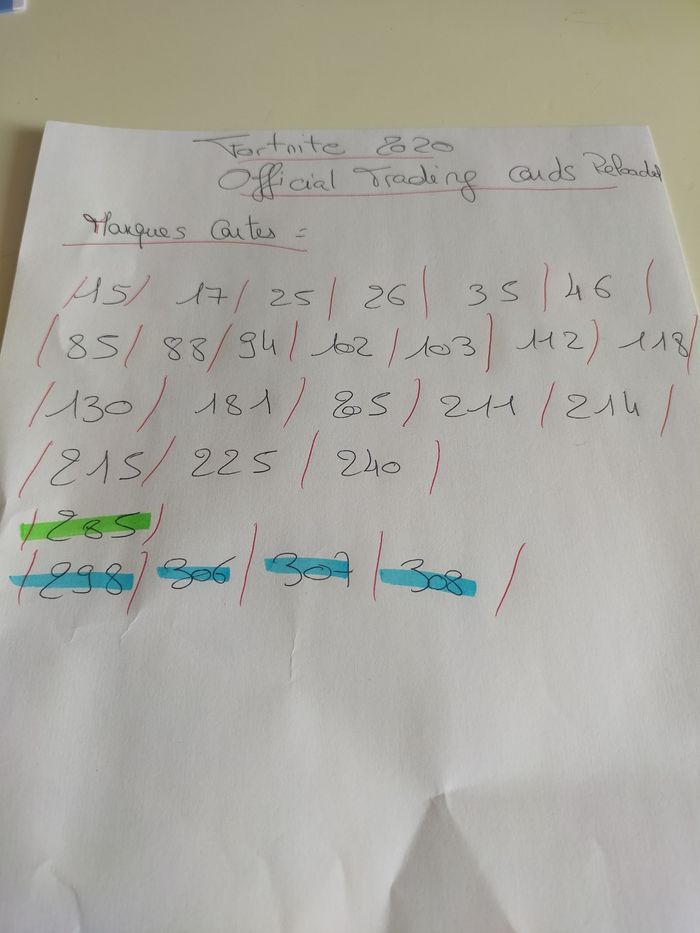 Fortnite 2020
Official Trading cards Reloaded
Manques Cartes =
/15/ 17/ 25/ 26/ 35/ 46/
/85/ 88/ 94/ 102/ 103/ 112/ 118/
/130/ 181/ 205/ 211/ 214/
/215/ 225/ 240/
/285/
/298/ 306/ 307/ 308/